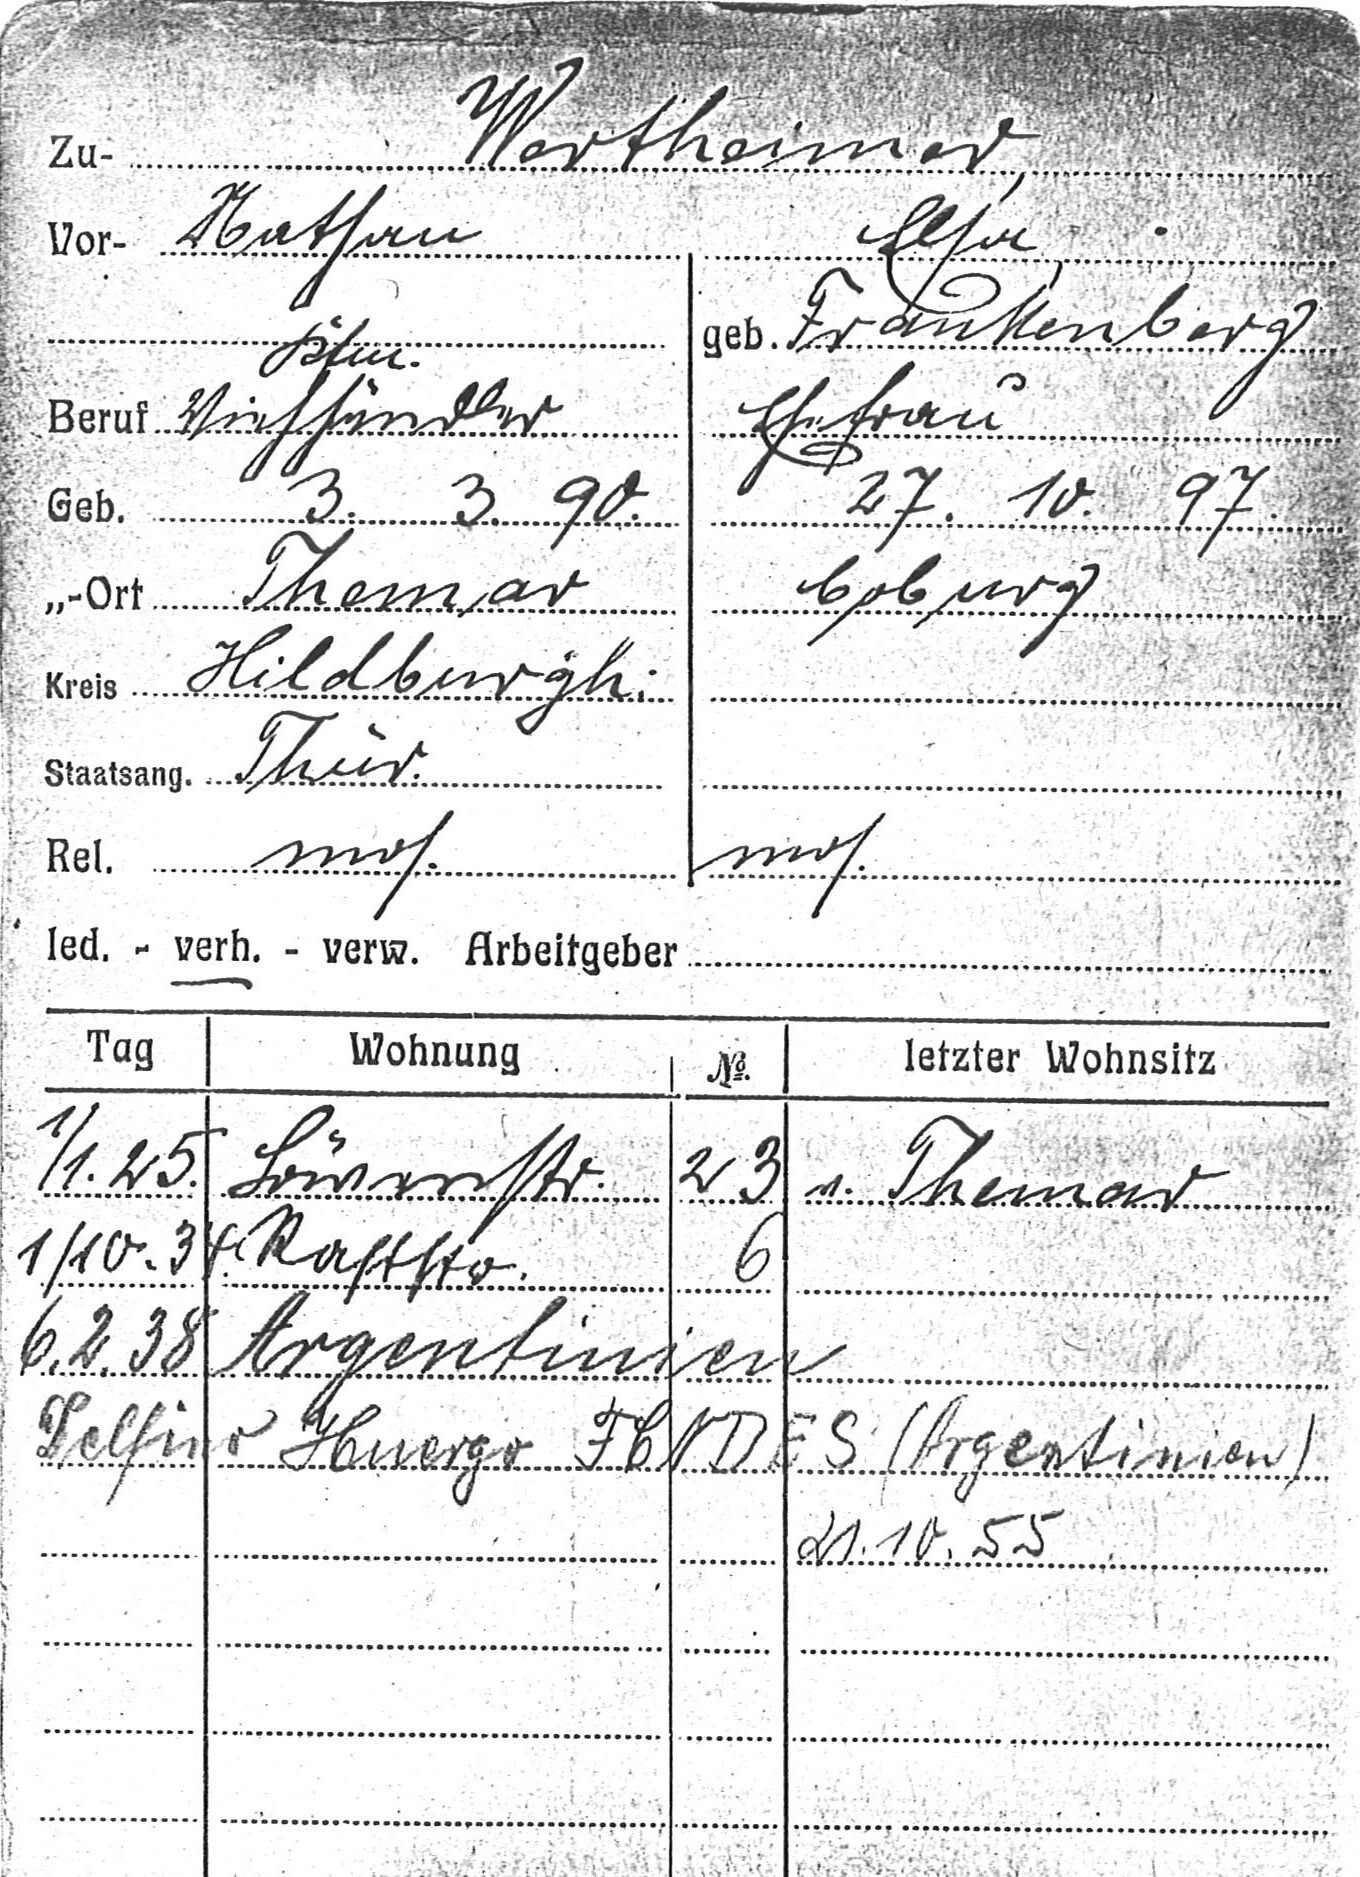 Zu- Wertheimer
Vor- Nathan Elsa
geb. Frankenberg
Kfm.
Beruf Viehhändler Ehefrau
Geb. 3. 3. 90. 27. 10. 97.
„-Ort Themar Coburg
Kreis Hildburgh.
Staatsang. Thür.
Rel. mos. mos.
led. - verh. - verw. Arbeitgeber
Tag Wohnung No. letzter Wohnsitz
1/1. 25. Löwenstr. 23 v. Themar
1/10. 34. Raststr. 6
6.2.38 Argentinien
Delfino Huergo (Argentinien)
21.10.55